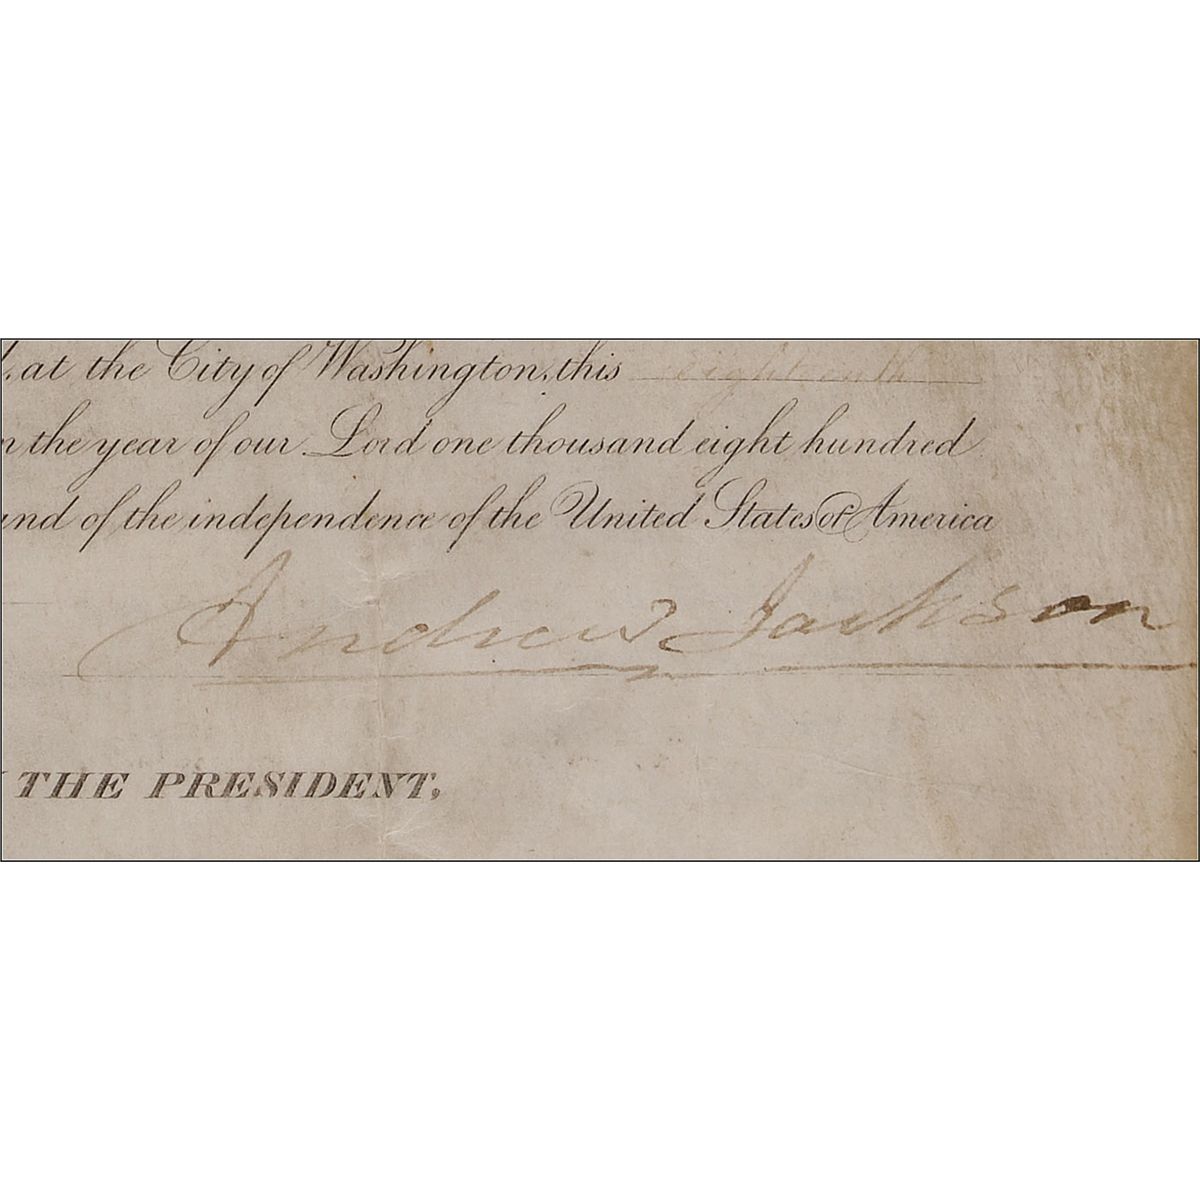 at the City of Washington, this eighteenth
the year of our Lord one thousand eight hundred
and of the independence of the United States of America
Andrew Jackson
THE PRESIDENT,